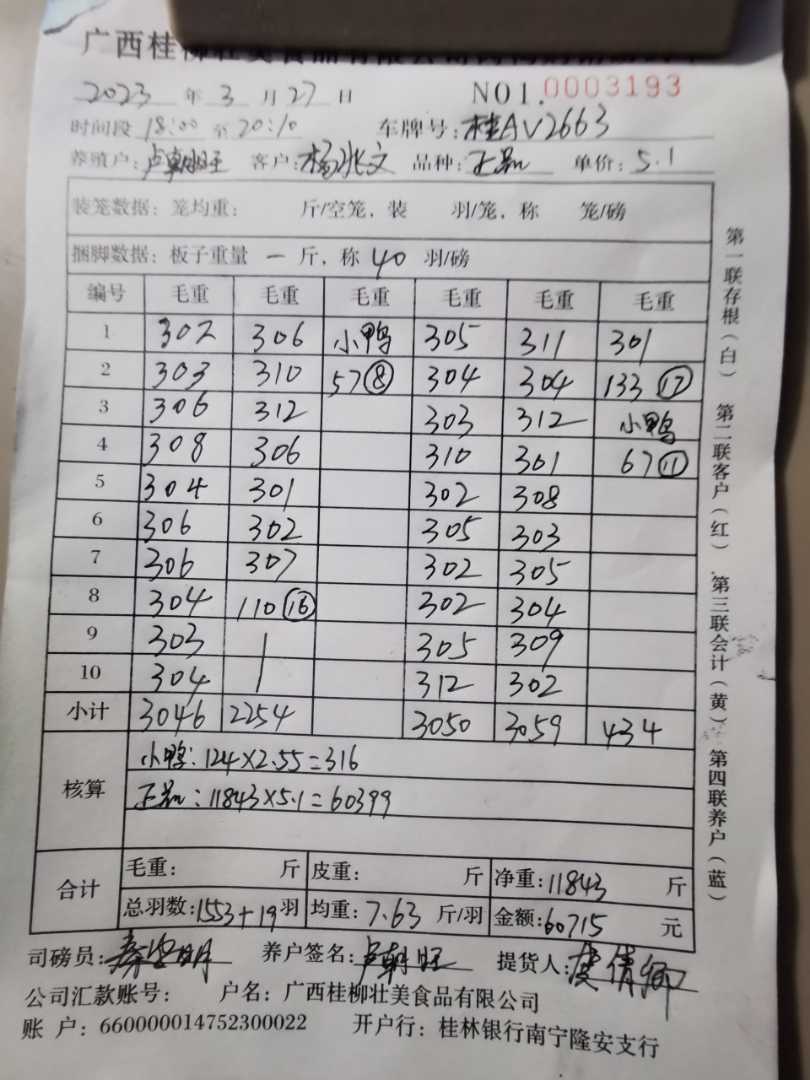 广西桂柳壮美食品有限公司
2023 年 3 月 27 日 NO1. 0003193
时间段 18:00 至 20:10 车牌号: 桂AV2663
养殖户: 卢朝旺 客户: 杨兆文 品种: 正品 单价: 5.1
装笼数据: 笼均重: 斤/空笼, 装 羽/笼, 称 笼/磅
捆脚数据: 板子重量 一 斤, 称 40 羽/磅
编号 毛重 毛重 毛重 毛重 毛重 毛重
1 302 306 小鸭 305 311 301
2 303 310 57⑧ 304 304 133⑰
3 306 312 303 312 小鸭
4 308 306 310 301 67⑪
5 304 301 302 308
6 306 302 305 303
7 306 307 302 305
8 304 110⑯ 302 304
9 303 305 309
10 304 312 302
小计 3046 2254 3050 3059 434
核算
小鸭: 124×2.55=316
正品: 11843×5.1=60399
合计
毛重: 斤 皮重: 斤 净重: 11843 斤
总羽数: 1553+19 羽 均重: 7.63 斤/羽 金额: 60715 元
司磅员: 养户签名: 卢朝旺 提货人:
公司汇款账号: 户名: 广西桂柳壮美食品有限公司
账 户: 660000014752300022 开户行: 桂林银行南宁隆安支行
第一联存根(白) 第二联客户(红) 第三联会计(黄) 第四联养户(蓝)